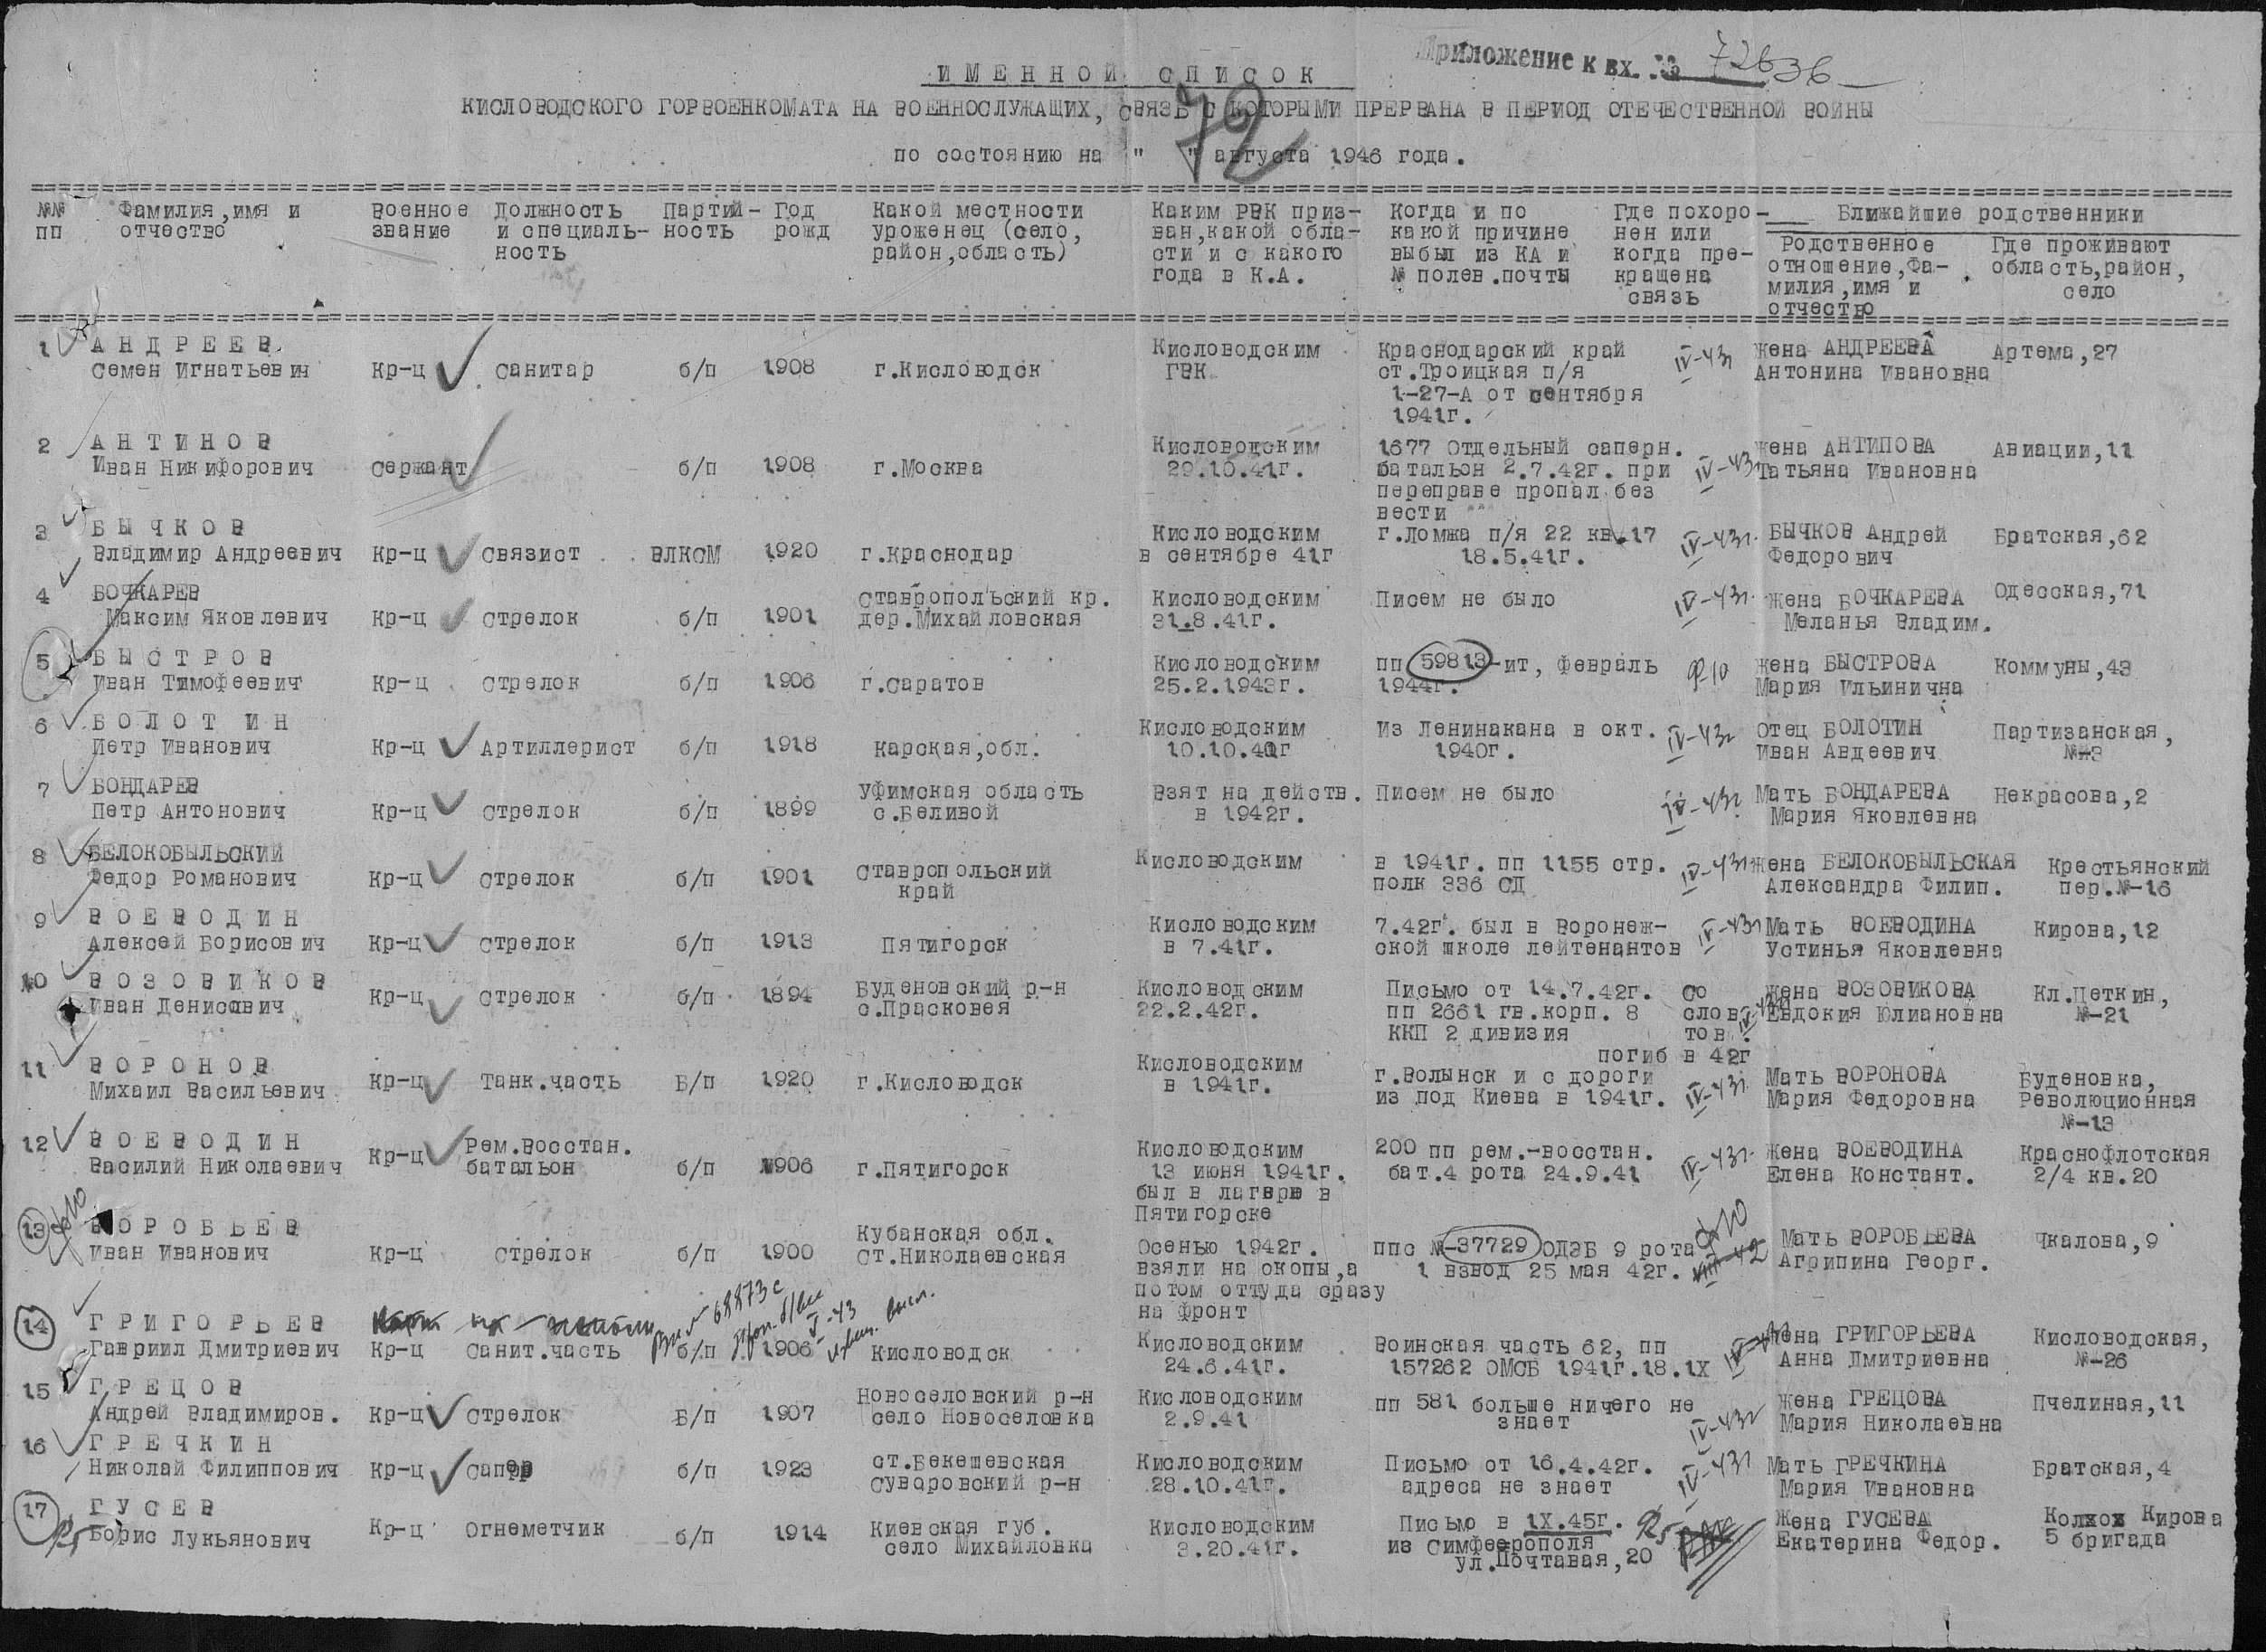 Приложение к вх. № 72636
ИМЕННОЙ СПИСОК
КИСЛОВОДСКОГО ГОРВОЕНКОМАТА НА ВОЕННОСЛУЖАЩИХ, СВЯЗЬ С КОТОРЫМИ ПРЕРВАНА В ПЕРИОД ОТЕЧЕСТВЕННОЙ ВОЙНЫ
72
по состоянию на " " августа 1946 года.
№№ пп Фамилия,имя и отчество Военное звание Должность и специаль-ность Партий-ность Год рожд Какой местности уроженец (село, район,область) Каким РВК приз-ван,какой обла-сти и с какого года в К.А. Когда и по какой причине выбыл из КА и № полев.почты Где похоро-нен или когда пре-кращена связь Ближайшие родственники
Родственное отношение,Фа-милия,имя и отчество Где проживают область,район, село
1 АНДРЕЕВ Семен Игнатьевич Кр-ц Санитар б/п 1908 г.Кисловодск Кисловодским ГВК Краснодарский край ст.Троицкая п/я 1-27-А от сентября 1941г. IV-43г Жена АНДРЕЕВА Антонина Ивановна Артема,27
2 АНТИНОВ Иван Никифорович Сержант б/п 1908 г.Москва Кисловодским 29.10.41г. 1677 Отдельный саперн. батальон 2.7.42г. при переправе пропал без вести IV-43г Жена АНТИПОВА Татьяна Ивановна Авиации,11
3 БЫЧКОВ Владимир Андреевич Кр-ц Связист ВЛКСМ 1920 г.Краснодар Кисловодским в сентябре 41г г.Ломжа п/я 22 кв.17 18.5.41г. IV-43г. БЫЧКОВ Андрей Федорович Братская,62
4 БОЧКАРЕВ Максим Яковлевич Кр-ц Стрелок б/п 1901 Ставропольский кр. дер.Михайловская Кисловодским 31.8.41г. Писем не было IV-43г. Жена БОЧКАРЕВА Меланья Владим. Одесская,71
5 БЫСТРОВ Иван Тимофеевич Кр-ц Стрелок б/п 1906 г.Саратов Кисловодским 25.2.1943г. пп 59813-ит, февраль 1944г. Жена БЫСТРОВА Мария Ильинична Коммуны,43
6 БОЛОТИН Петр Иванович Кр-ц Артиллерист б/п 1918 Карская,обл. Кисловодским 10.10.40г Из Ленинакана в окт. 1940г. IV-43г Отец БОЛОТИН Иван Авдеевич Партизанская, №-3
7 БОНДАРЕВ Петр Антонович Кр-ц Стрелок б/п 1899 Уфимская область с.Беливой Взят на действ. в 1942г. Писем не было IV-43г Мать БОНДАРЕВА Мария Яковлевна Некрасова,2
8 БЕЛОКОБЫЛЬСКИЙ Федор Романович Кр-ц Стрелок б/п 1901 Ставропольский край Кисловодским в 1941г. пп 1155 стр. полк 336 СД IV-43г Жена БЕЛОКОБЫЛЬСКАЯ Александра Филип. Крестьянский пер.№-16
9 ВОЕВОДИН Алексей Борисович Кр-ц Стрелок б/п 1913 Пятигорск Кисловодским в 7.41г. 7.42г. был в Воронеж-ской школе лейтенантов IV-43г Мать ВОЕВОДИНА Устинья Яковлевна Кирова,12
10 ВОЗОВИКОВ Иван Денисович Кр-ц Стрелок б/п 1894 Буденовский р-н с.Прасковея Кисловодским 22.2.42г. Письмо от 14.7.42г. пп 2661 гв.корп. 8 ККП 2 дивизия со слов тов. погиб в 42г Жена ВОЗОВИКОВА Евдокия Юлиановна Кл.Цеткин, №-21
11 ВОРОНОВ Михаил Васильевич Кр-ц Танк.часть Б/п 1920 г.Кисловодск Кисловодским в 1941г. г.Волынск и с дороги из под Киева в 1941г. IV-43г. Мать ВОРОНОВА Мария Федоровна Буденовка, Революционная №-13
12 ВОЕВОДИН Василий Николаевич Кр-ц Рем.Восстан. батальон б/п 1906 г.Пятигорск Кисловодским 13 июня 1941г. был в лагере в Пятигорске 200 пп рем.-восстан. бат.4 рота 24.9.41 IV-43г. Жена ВОЕВОДИНА Елена Констант. Краснофлотская 2/4 кв.20
13 ВОРОБЬЕВ Иван Иванович Кр-ц Стрелок б/п 1900 Кубанская обл. ст.Николаевская Осенью 1942г. взяли на окопы,а потом оттуда сразу на фронт ппс №-37729 ОДЭБ 9 рота 1 взвод 25 мая 42г. VIII-42 Мать ВОРОБЬЕВА Агрипина Георг. Чкалова,9
14 ГРИГОРЬЕВ Гавриил Дмитриевич Кр-ц Санит.часть б/п 68873с V-43 1906 Кисловодск Кисловодским 24.6.41г. Воинская часть 62, пп 157262 ОМСБ 1941г.18.IX Жена ГРИГОРЬЕВА Анна Дмитриевна Кисловодская, №-26
15 ГРЕЦОВ Андрей Владимиров. Кр-ц Стрелок Б/п 1907 Новоселовский р-н село Новоселовка Кисловодским 2.9.41 пп 581 больше ничего не знает IV-43г Жена ГРЕЦОВА Мария Николаевна Пчелиная,11
16 ГРЕЧКИН Николай Филиппович Кр-ц Сапер б/п 1923 ст.Бекешевская Суворовский р-н Кисловодским 28.10.41г. Письмо от 16.4.42г. адреса не знает IV-43г Мать ГРЕЧКИНА Мария Ивановна Братская,4
17 ГУСЕВ Борис Лукьянович Кр-ц Огнеметчик б/п 1914 Киевская губ. село Михайловка Кисловодским 3.20.41г. Письмо в IX.45г. из Симферополя ул.Почтавая,20 Жена ГУСЕВА Екатерина Федор. Колхох Кирова 5 бригада